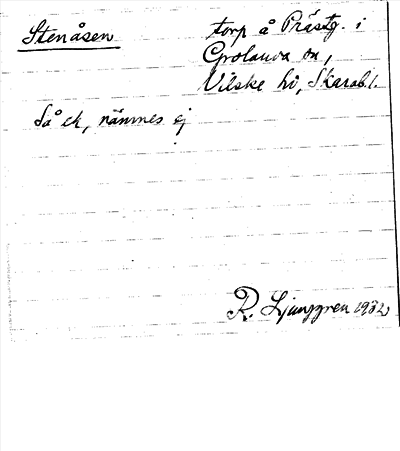 Stenåsen
torp å Prästg. i
Grolanda sn,
Vilske hd, Skarab.l.
Så ek, nämnes ej
R. Ljunggren 1932